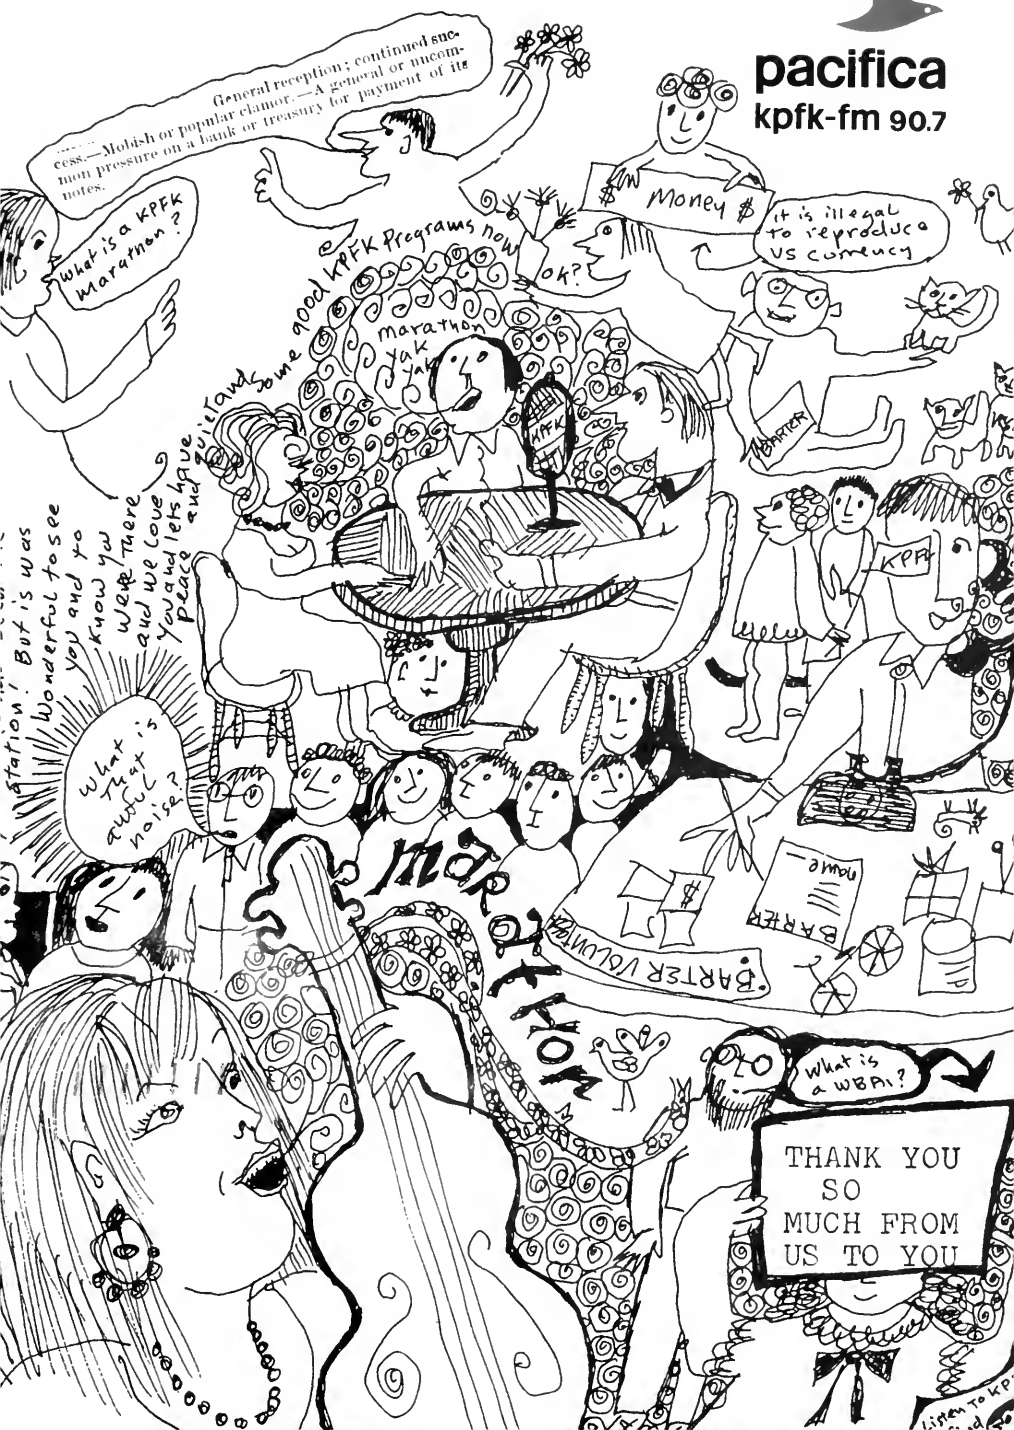 pacifica
kpfk-fm 90.7
General reception; continued suc-
cess.—Mobish or popular clamor.—A general or uncom-
mon pressure on a bank or treasury for payment of its
notes.
What is a KPFK
Marathon?
$ Money $
It is illegal
to reproduce
US currency
OK?
Some good KPFK Programs now
marathon
yak
yak
KPFK
BARTER
KPFK
Station! But is was
Wonderful to see
you and to
Know you
Were There
and we love
You and lets have
peace and quiet
and
What is
That
awful
noise?
marathon
$
name
BARTER
BARTER VOLUNTEER
What is
a WBAI?
THANK YOU
SO
MUCH FROM
US TO YOU
Listen To KP